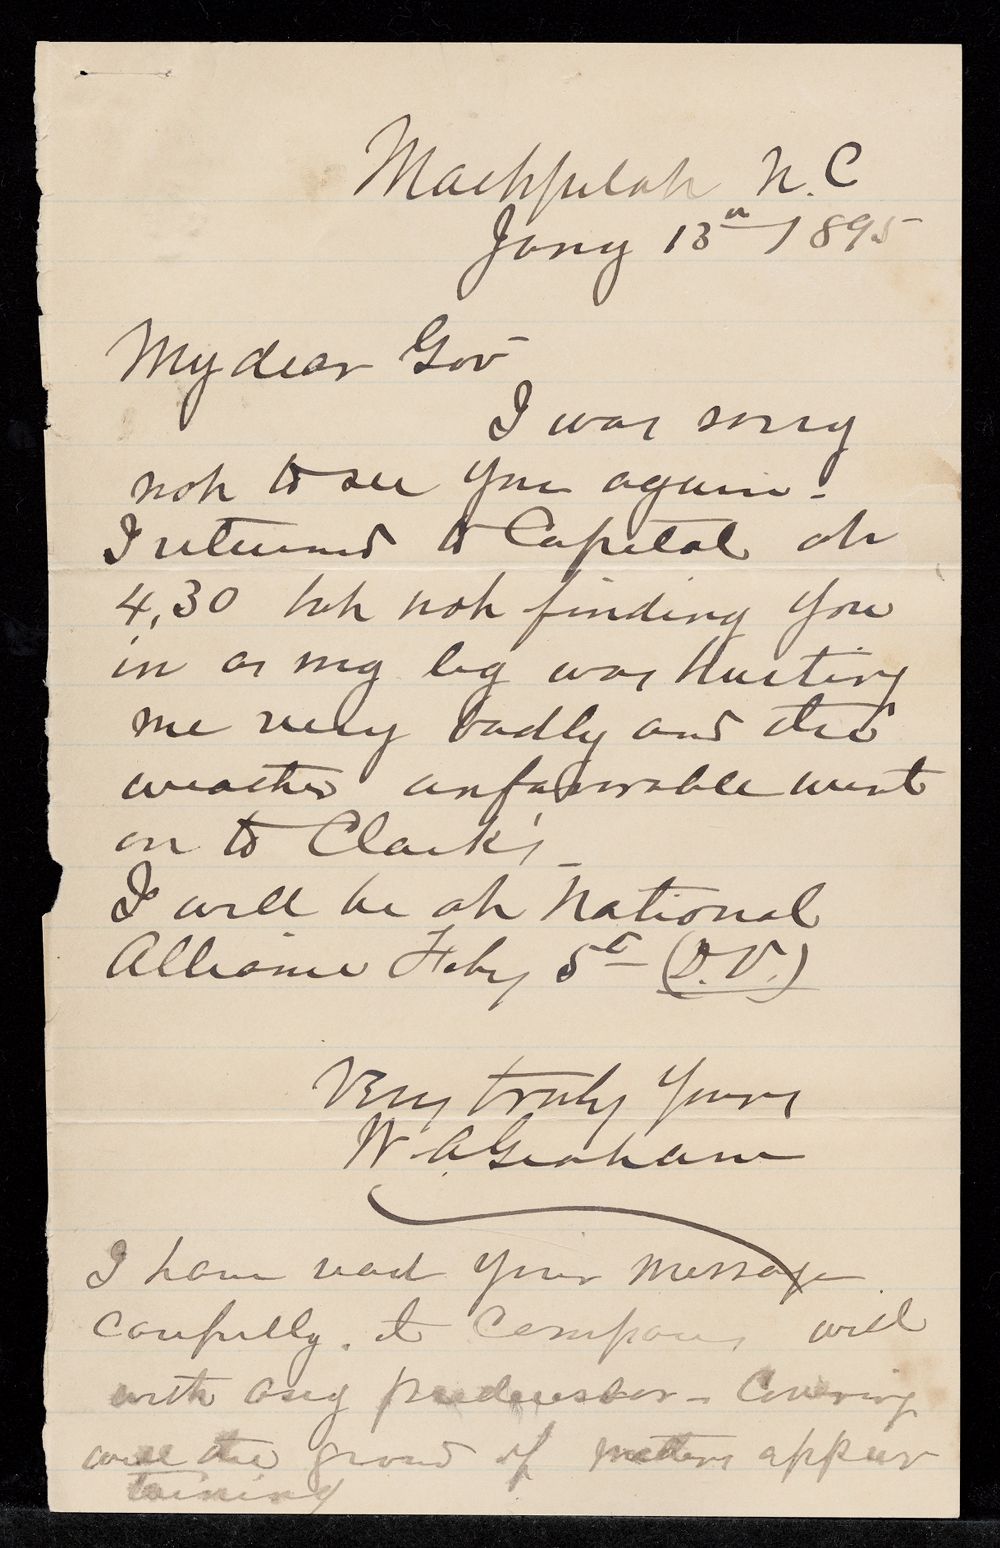 Machpelah N.C
Jany 13th 1895
My dear Gov
I was sorry
not to see you again -
I returned to Capital at
4,30 but not finding you
in as my leg was hurting
me very badly and the
weather unfavorable went
on to Clark's -
I will be at National
Alliance Feby 5th (D.V.)
Very truly yours
W. A Graham
I have read your message
carefully. It compares well
with any predecessor - Covering
well the ground of matters apper
taining